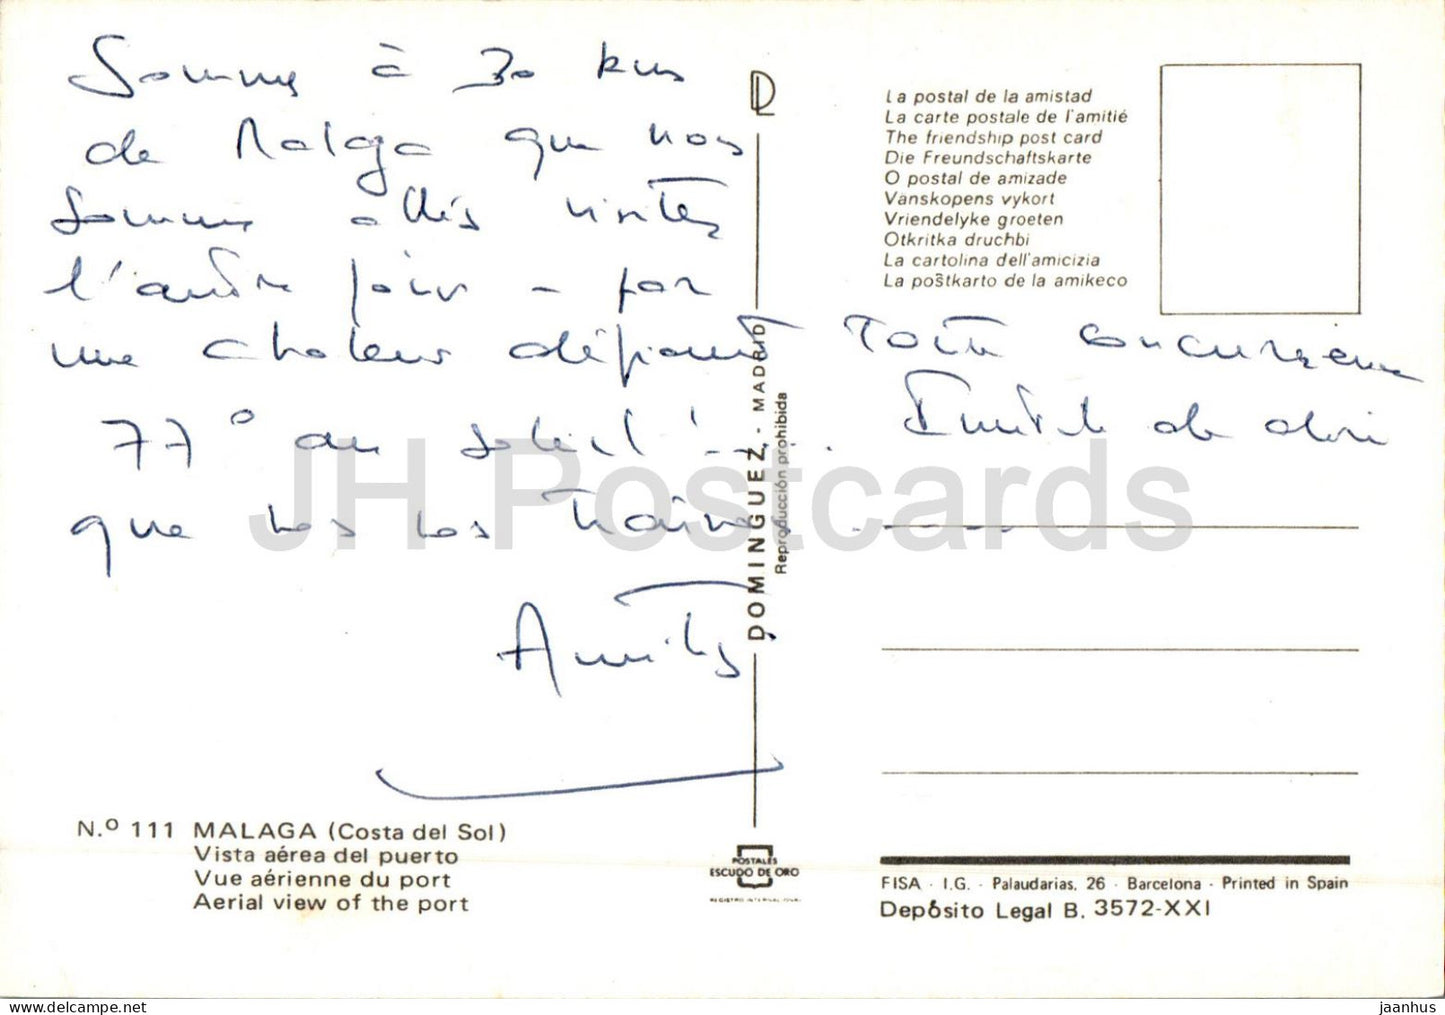 Somme à 30 kms
de Malaga que nous
somme allés visiter
l'autre jour - par
une chaleur défiant toute concurrence
77° au soleil !.... Inutile de dire
que nos nos
Amitiés
DL
DOMINGUEZ - MADRID
Reproducción prohibida
La postal de la amistad
La carte postale de l'amitié
The friendship post card
Die Freundschaftskarte
O postal de amizade
Vanskopens vykort
Vriendelyke groeten
Otkritka druchbi
La cartolina dell'amicizia
La poŝtkarto de la amikeco
JH Postcards
N.º 111 MALAGA (Costa del Sol)
Vista aérea del puerto
Vue aérienne du port
Aerial view of the port
POSTALES
ESCUDO DE ORO
REGISTRO INTERNACIONAL
FISA · I.G. · Palaudarias, 26 · Barcelona · Printed in Spain
Depósito Legal B. 3572-XXI
hippostcard.com/store/jaanhus